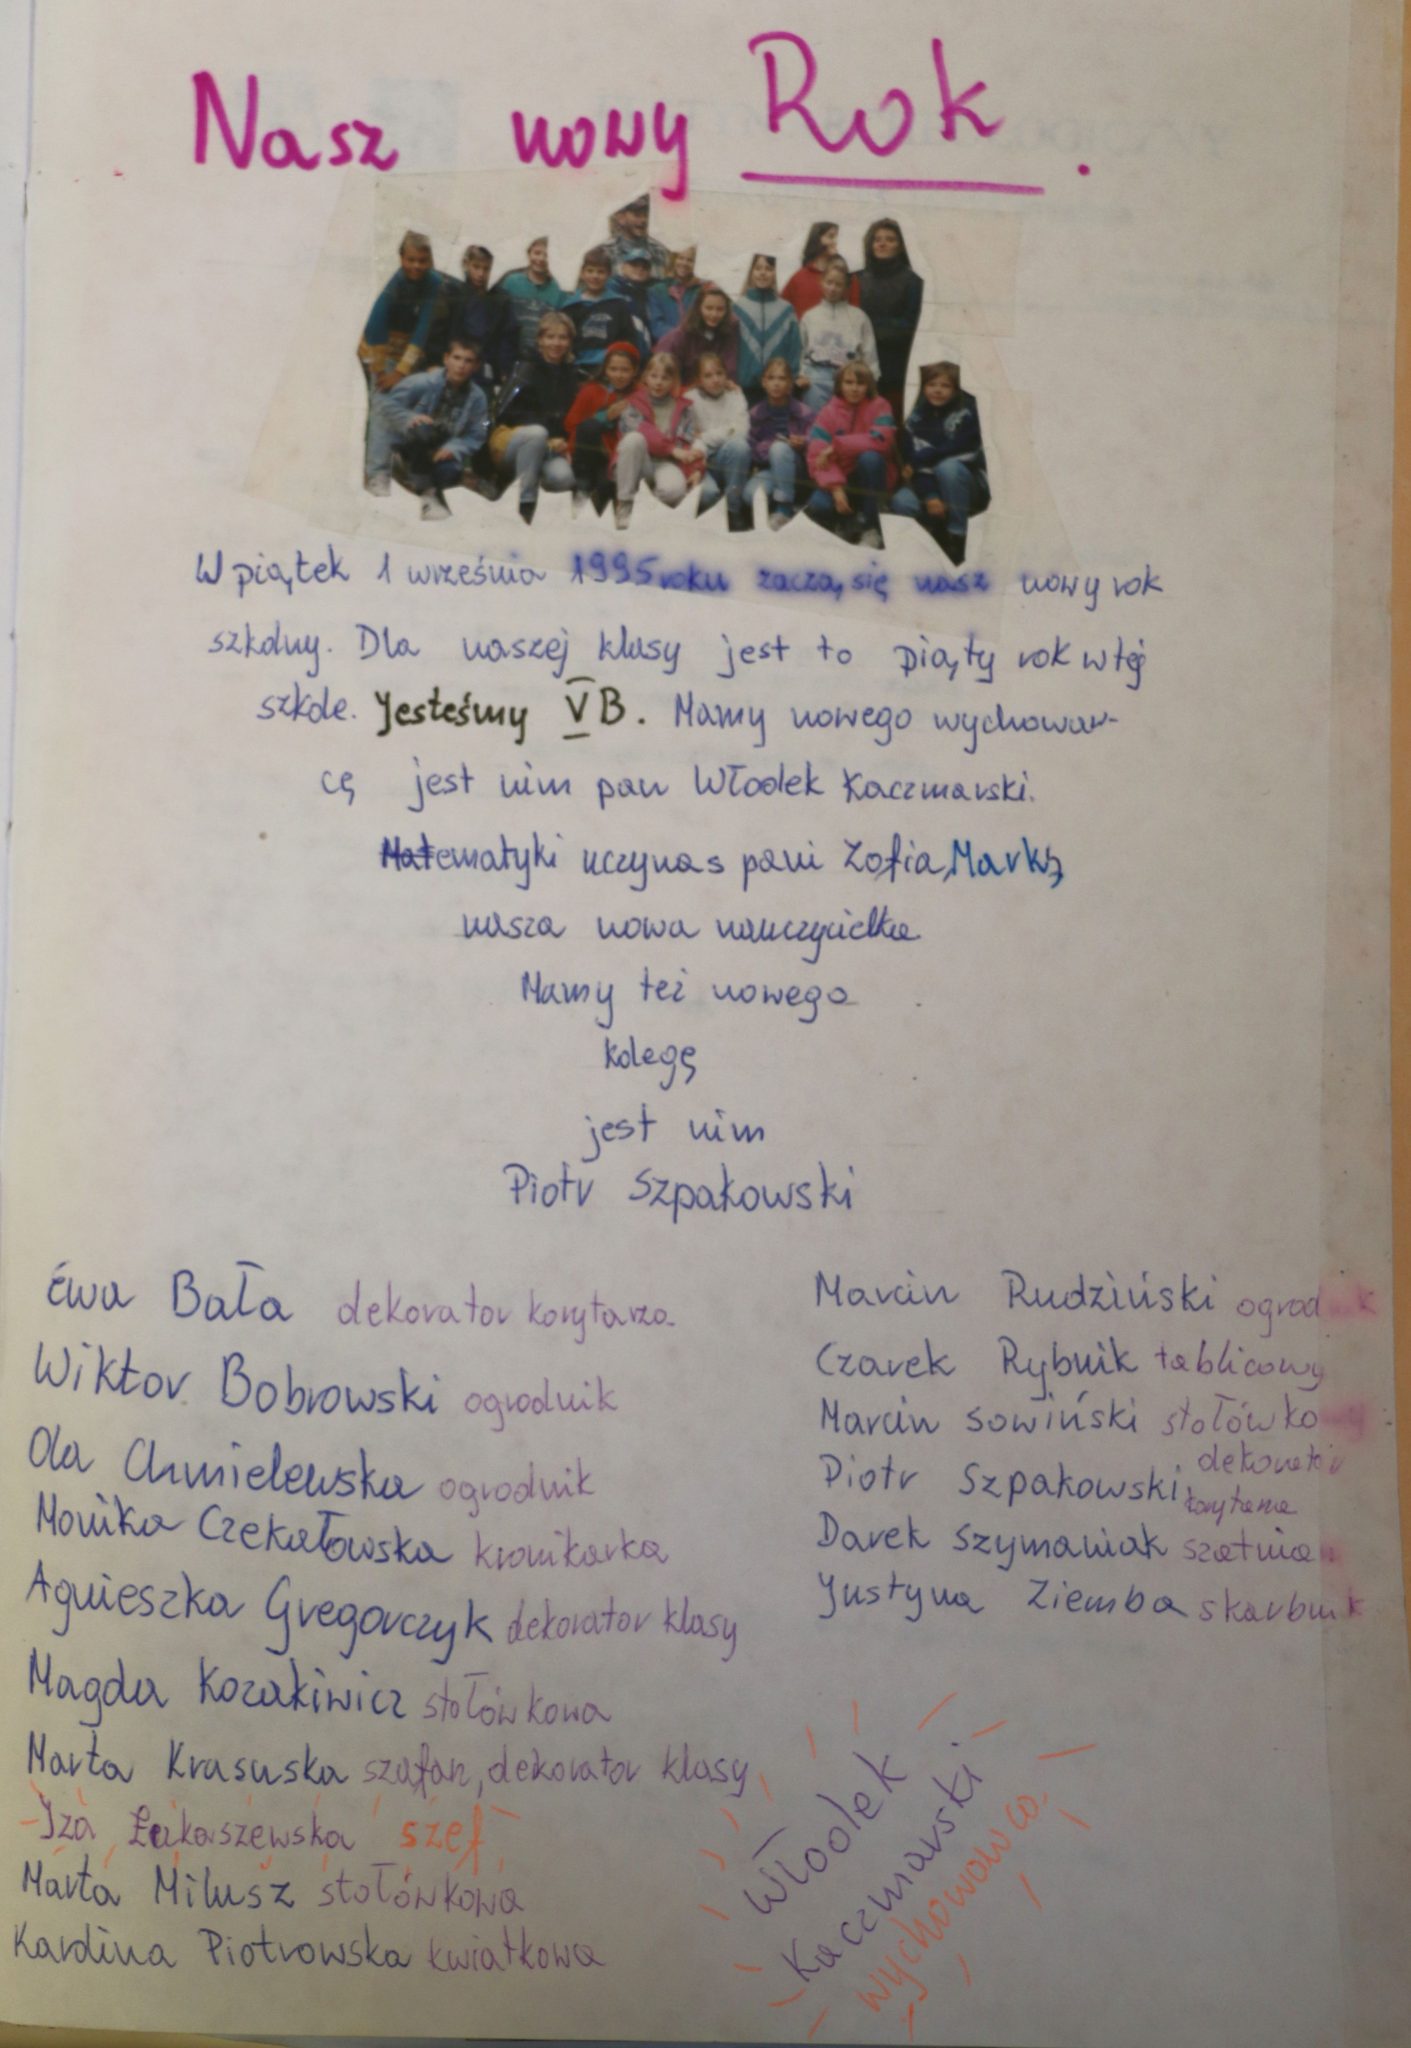 Nasz nowy Rok.
W piątek 1 września 1995 roku zaczął się nasz nowy rok
szkolny. Dla naszej klasy jest to piąty rok w tej
szkole. Jesteśmy V B. Mamy nowego wychowaw-
cę jest nim pan Włodek Kaczmarski.
Matematyki uczy nas pani Zofia Marks,
nasza nowa nauczycielka
Mamy też nowego
kolegę
jest nim
Piotr Szpakowski
Ewa Bała dekorator korytarza
Wiktor Bobrowski ogrodnik
Ola Chmielewska ogrodnik
Monika Czekałowska kronikarka
Agnieszka Gregorczyk dekorator klasy
Magda Kozakiwicz stołówkowa
Marta Krasuska szafarz, dekorator klasy
Iza Łukaszewska szef
Marta Milusz stołówkowa
Karolina Piotrowska kwiatkowa
Marcin Rudziński ogrodnik
Czarek Rybnik tablicowy
Marcin Sowiński stołówkowy
Piotr Szpakowski dekorator
korytarza
Darek Szymaniak szatnia
Justyna Ziemba skarbnik
Włodek
Kaczmarski
wychowawca